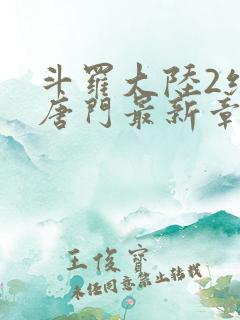 斗羅大陸2
唐門最新章
王俊寳
未经同意禁止转载